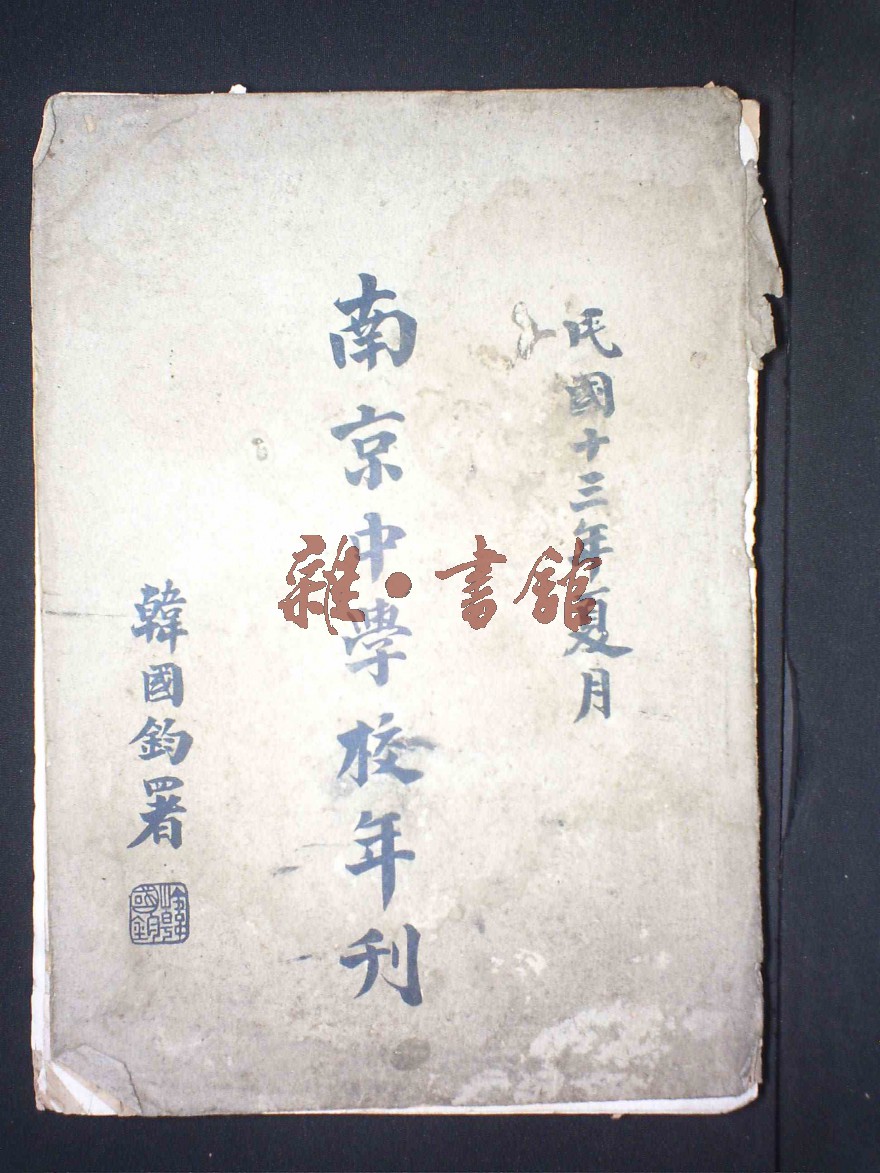 民國十三年夏月
南京中學校年刊
韓國鈞署
雜·書館